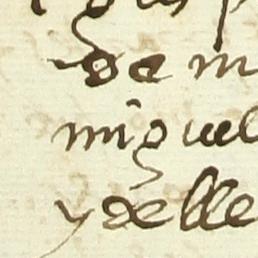 de m
miguel
y de lle